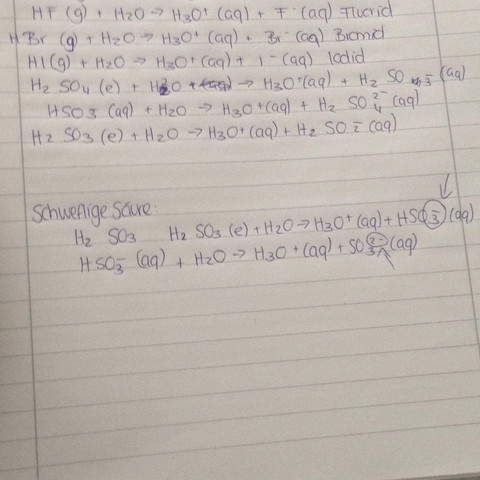 HF (g) + H2O → H3O+ (aq) + F- (aq) Fluorid
HBr (g) + H2O → H3O+ (aq) + Br- (aq) Bromid
HI (g) + H2O → H3O+ (aq) + I- (aq) Iodid
H2 SO4 (e) + H2O → H3O+ (aq) + H2 SO (aq)
HSO3 (aq) + H2O → H3O+ (aq) + H2 SO4 2- (aq)
H2 SO3 (e) + H2O → H3O+ (aq) + H2 SO 2- (aq)
Schweflige Säure:
H2 SO3 H2 SO3 (e) + H2O → H3O+ (aq) + HSO3- (aq)
HSO3- (aq) + H2O → H3O+ (aq) + SO3 2- (aq)